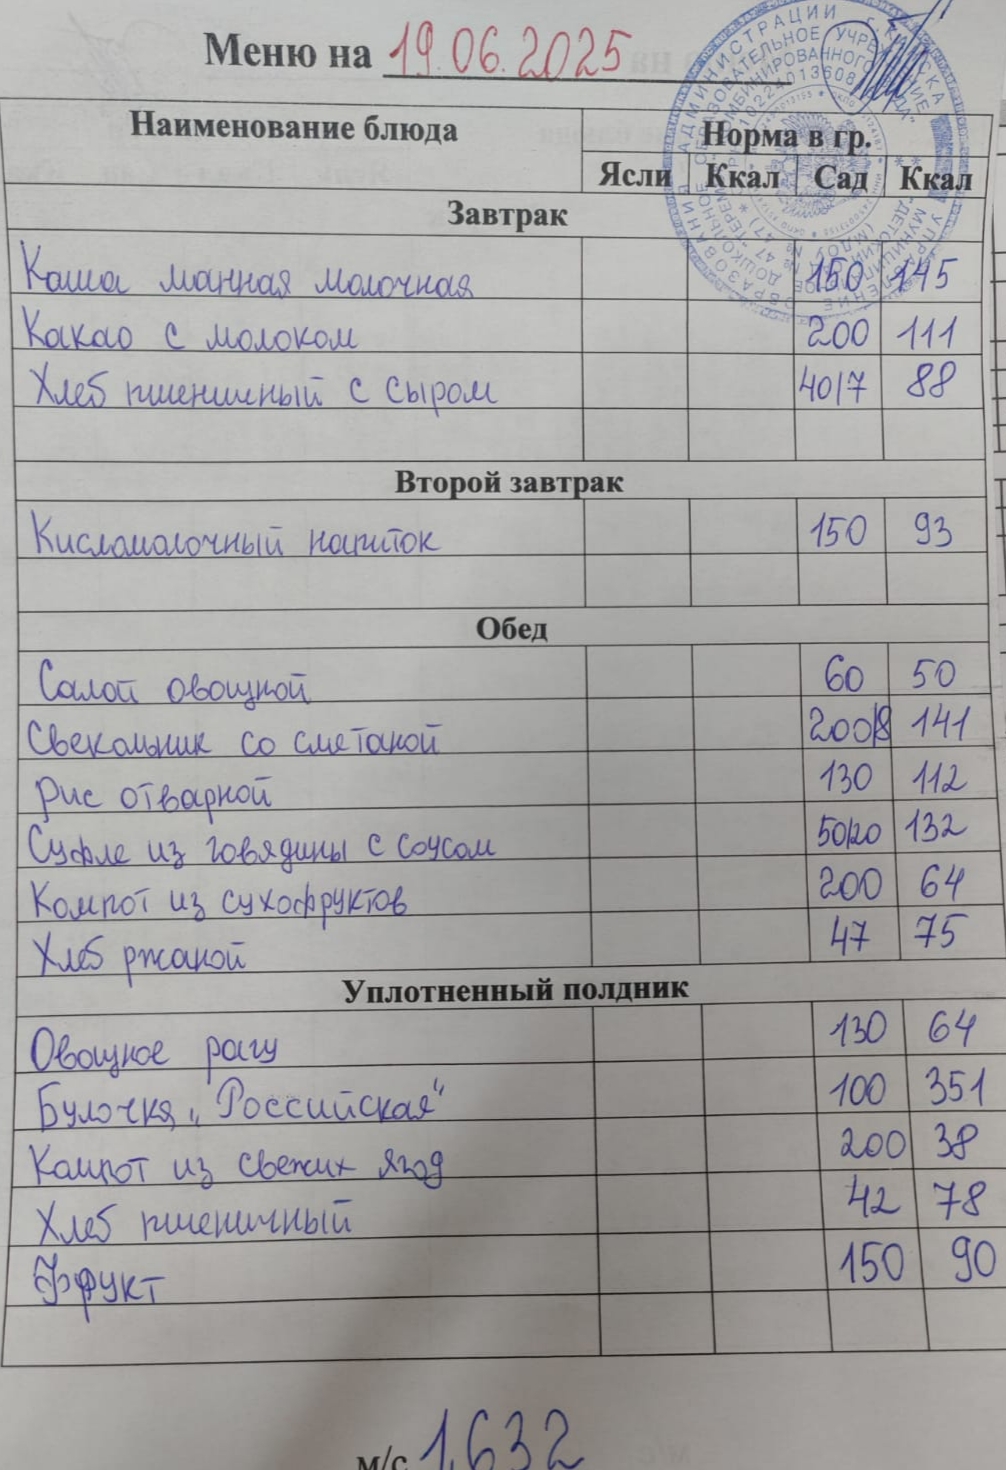 Меню на 19.06.2025
Наименование блюда Норма в гр.
Ясли Ккал Сад Ккал
Завтрак
Каша манная молочная 150 145
Какао с молоком 200 111
Хлеб пшеничный с сыром 40/7 88
Второй завтрак
Кисломолочный напиток 150 93
Обед
Салат овощной 60 50
Свекольник со сметаной 200/8 141
Рис отварной 130 112
Суфле из говядины с соусом 50/20 132
Компот из сухофруктов 200 64
Хлеб ржаной 47 75
Уплотненный полдник
Овощное рагу 130 64
Булочка „Российская“ 100 351
Компот из свежих ягод 200 38
Хлеб пшеничный 42 78
Фрукт 150 90
м/с 1.632